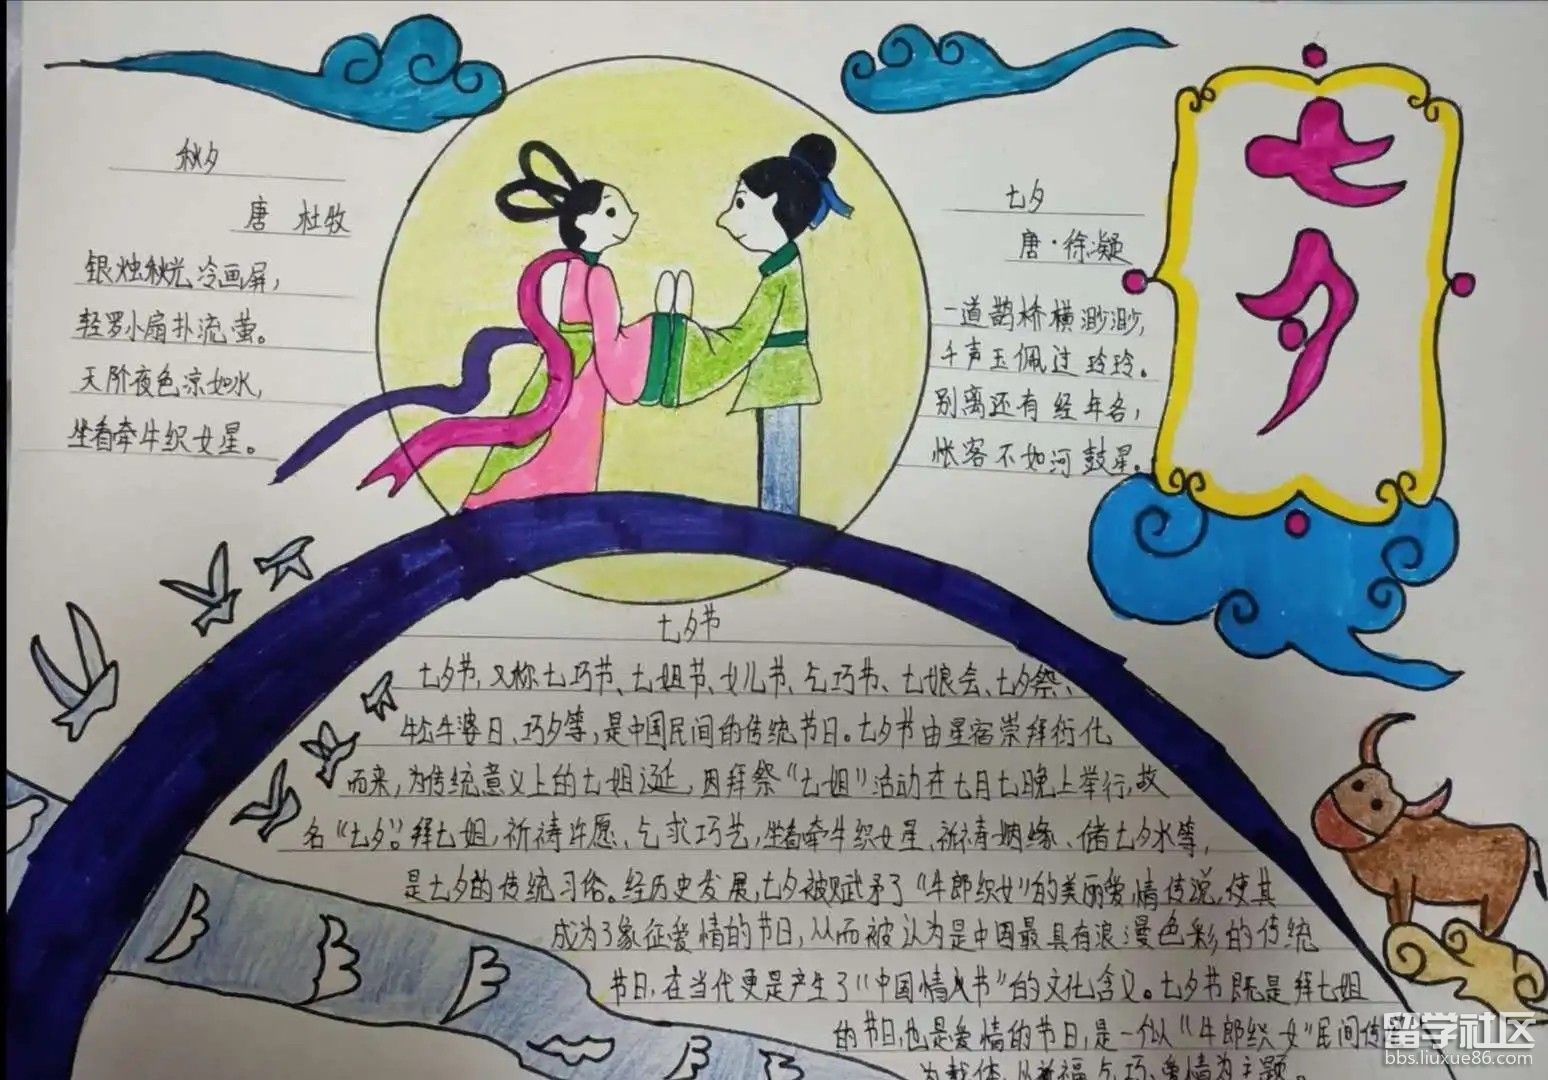 秋夕
唐 杜牧
银烛秋光冷画屏，
轻罗小扇扑流萤。
天阶夜色凉如水，
坐看牵牛织女星。
七夕
唐·徐凝
一道鹊桥横渺渺，
千声玉佩过玲玲。
别离还有经年客，
怅客不如河鼓星。
七夕
七夕节
七夕节，又称七巧节、七姐节、女儿节、乞巧节、七娘会、七夕祭、
牛公牛婆日、巧夕等，是中国民间的传统节日。七夕节由星宿崇拜衍化
而来，为传统意义上的七姐诞，因拜祭“七姐”活动在七月七晚上举行，故
名“七夕”。拜七姐，祈祷许愿、乞求巧艺，坐看牵牛织女星、祈祷姻缘、储七夕水等，
是七夕的传统习俗。经历史发展，七夕被赋予了“牛郎织女”的美丽爱情传说，使其
成为了象征爱情的节日，从而被认为是中国最具有浪漫色彩的传统
节日，在当代更是产生了“中国情人节”的文化含义。七夕节既是拜七姐
的节日，也是爱情的节日，是一个以“牛郎织女”民间传
为载体，以祈福、乞巧、爱情为主题。
留学社区
bbs.liuxue86.com